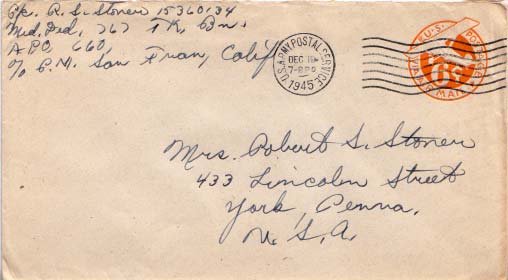 Pfc. R. S. Stoner 15360134
Med. Det, 767 TK, Bn.
APO 660,
c/o P.M. San Fran, Calif
U.S. ARMY POSTAL SERVICE
DEC
7-8 PM
1945
U.S. POSTAGE
VIA AIR MAIL
Mrs. Robert S. Stoner
433 Lincoln Street
York, Penna.
U. S. A.